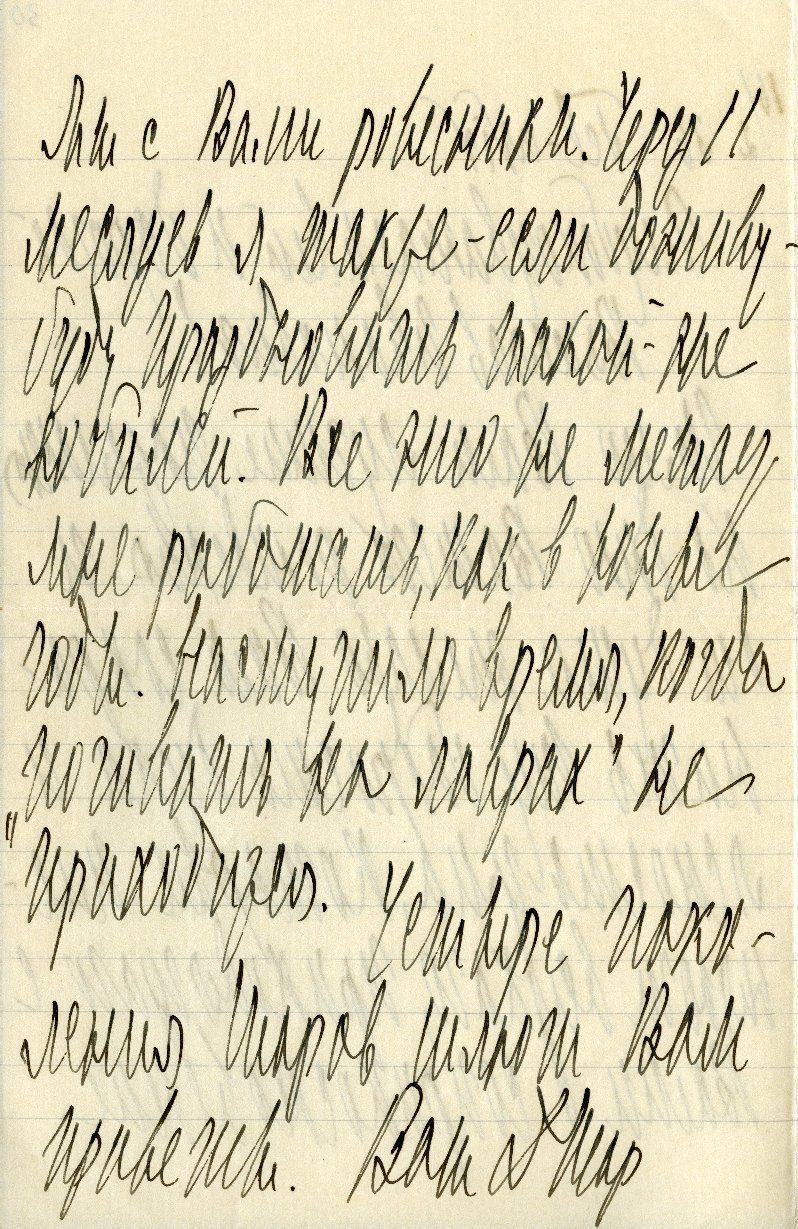 Мы с Вами ровесники. Через 11
месяцев я также – если доживу –
буду праздновать такой-же
юбилей. Все это не мешает
мне работать, как в юные
годы. Наступило время, когда
почивать на лаврах" не
"приходится. Четыре поко-
ления Шоров шлют Вам
приветы. Ваш Д Шор